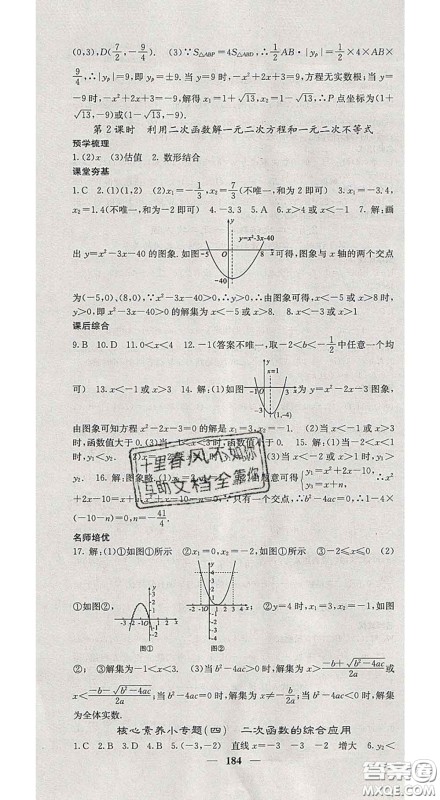 (0,3), D(7/2, -9/4). (3)∵S△ABP=4S△ABD, ∴1/2 AB·|yp|=1/2×4×AB×
9/4, ∴|yp|=9, 即 yp=±9. 当 y=9 时, -x²+2x+3=9, 方程无实数根; 当 y=
-9 时, -x²+2x+3=-9, 解得 x₁=1+√13, x₂=1-√13, ∴P 点坐标为(1+
√13, -9)或(1-√13, -9).
第 2 课时 利用二次函数解一元二次方程和一元二次不等式
预学梳理
1. (2)x (3)估值 2. 数形结合
课堂夯基
1. C 2. (1)(1, 2) (2)x₁=-1/3, x₂=7/3(不唯一, 和为 2 即可) 3. x₁=-3.4,
x₂=1.4(不唯一, 和为-2 即可) 4. -3.3 5. A 6. x>4或x<-2 7. 解: 画
出 y=x²-3x-40 的图象. 如图
y=x²-3x-40
-5 O 8 x
-40
可得, 图象与 x 轴的两个交点
为(-5,0), (8,0), ∵x²-3x-40>0, ∴y>0, ∴由图象可得, x<-5 或 x>8 时,
y>0, 即 x²-3x-40>0 的解集为 x<-5 或 x>8. 8. x<0或x>1
课后综合
9. B 10. D 11. 0<x<4 12. -1(答案不唯一, 取-2<b<-1/2中任意一个均
可) 13. x<-1 或 x>3 14. 解: (1)如图
x=1
(1,-4)
为 y=x²-2x-3 图象,
由图象可知方程 x²-2x-3=0 的解为 x₁=3, x₂=-1. (2)当 x<-1 或 x>3
时, 函数值大于 0. (3)当-1<x<3 时, 函数值小于 0.
时, y₁<y₂.
16. 解: 图象略.
x²+2x-10=n
∴x²+
2x-10=n, ∴b²-4ac=0, ∴1-4×
(-10-n)=0, n=-41/4.
名师培优
17. 解: (1)①如图①所示 ②x₁=0, x₂=-2, 如图①所示 ③-2≤x≤0 (2)
①如图②, ②y=4 时, x₁=3, x₂=-1, 如图
图① 图②
②; ③解集为-1<x<3. (3)当 b²-4ac>0 时, 解集为 x>(-b+√(b²-4ac))/2a 或
x<(-b-√(b²-4ac))/2a; 当 b²-4ac=0 时, 解集为 x≠-b/2a; 当 b²-4ac<0 时, 解集
为全体实数.
核心素养小专题(四) 二次函数的综合应用
1. C 2. B 3. D 4. B 5. (-3, -2) 直线 x=-3 -3 -2 增大 6. y₂<
184
十里春风不如你
互助文档全靠你
答案圈
MXQE.COM